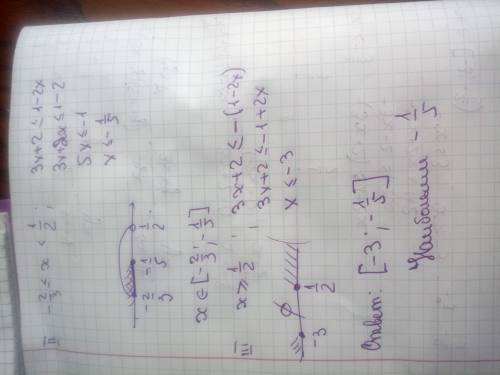 II -2/3 ≤ x < 1/2 ; 3x+2 ≤ 1-2x
3x+2x ≤ 1-2
5x ≤ -1
x ≤ -1/5
-2/3 -1/5 1/2
x ∈ [-2/3; -1/5]
III x ≥ 1/2 ; 3x+2 ≤ -(1-2x)
3x+2 ≤ -1+2x
x ≤ -3
-3 ∅ 1/2
Ответ: [-3; -1/5]
Наибольшим -1/5